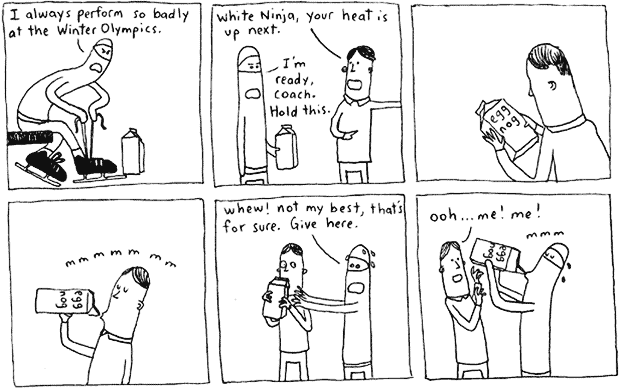 I always perform so badly
at the Winter Olympics.
White Ninja, your heat is
up next.
I'm
ready,
coach.
Hold this.
egg
nog
mmmmmm
egg
nog
whew! not my best, that's
for sure. Give here.
egg
nog
ooh...me! me!
mmm
egg
nog